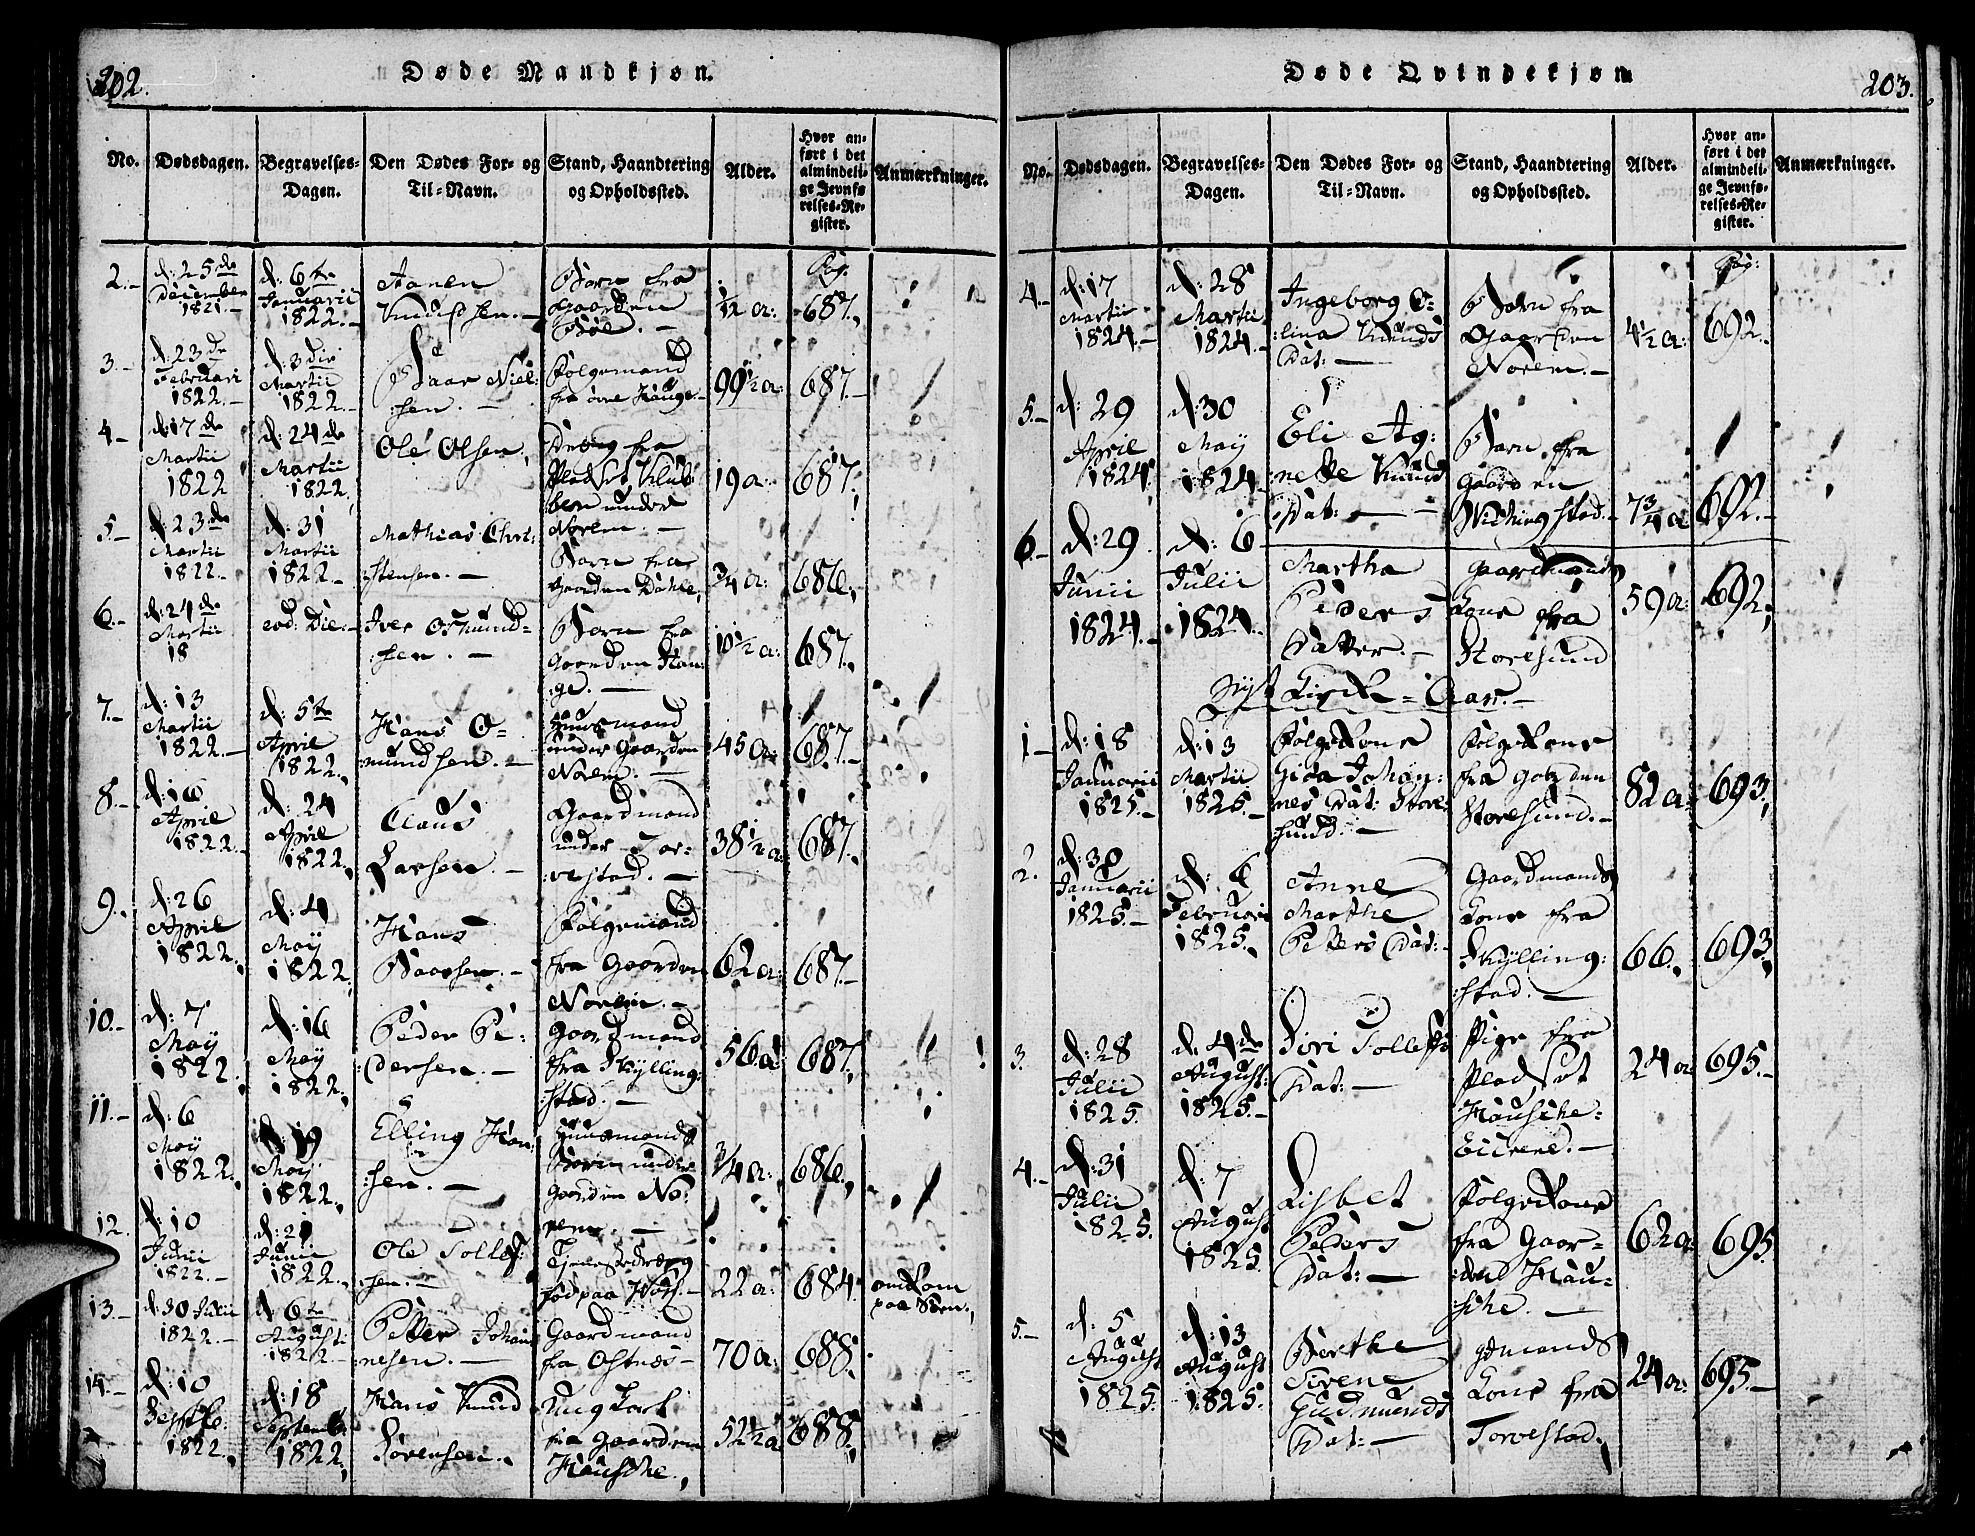 202.
Døde Mandkjøn.
No.
Dødsdagen.
Begravelses-
Dagen.
Den Dødes For- og
Til-Navn.
Stand, Haandtering
og Opholdssted.
Alder.
Hvor an-
ført i det
almindeli-
ge Jevnfø-
relses-Re-
gister.
Anmærkninger.
Pag.
2.-
d: 25de
December
1821.-
d: 6te
Januarii
1822.-
Aanen
Knudsen.-
Barn fra
Gaarden
Bøe.-
1/2 a:
687.
3.-
d: 23de
Februari
1822.-
d: 3die
Martii
1822.-
Baar Niel:
:sen.-
Folgemand
fra øvre Hauge.-
99 1/2 a:
687.-
4.-
d: 17de
Martii
1822
d: 24de
Martii
1822.
Ole Olsen.
Dreng fra
Pladset
under
Norem.-
19 a:
687.
5.-
d: 23de
Martii
1822.-
d: 31
Martii
1822.-
Mathias Chri:
:stensen.-
Barn fra
Gaarden Dahle,
3/4 a:
686.
6.-
d: 24de
Martii
18
eod: Die.-
Iver Osmund-
:sen.-
Barn fra
Gaarden Hau:
:ge.-
10 1/2 a:
687.
7.-
d: 13
Martii
1822.-
d: 5te
April
1822.
Hans O-
mundsen.-
Huusmand
under Gaarden
Norem.-
45 a:
687.-
8.-
d: 16
April
1822.-
d: 24
April
1822.
Claus
Larsen.-
Gaardmand
under Tor-
vestad.-
38 1/2 a:
687.
9.
d: 26
April
1822.
d: 4
Maÿ
1822
Hans
Baarsen.-
Folgemand
fra Gaarden
Norem.-
62 a:
687.-
10.-
d: 7
Maÿ
1822.
d: 16
Maÿ
1822.
Peder Pe-
:dersen.-
Gaardmand
fra Skylling:
:stad.-
56 a:
687.
11.-
d: 6
Maÿ
1822.
d: 19
Maÿ
1822.
Elling Han:
:sen.-
Huusmands
Barn under
Gaarden No:
rem.-
3/4 a:
686.
12.
d: 10
Junii
1822.-
d: 21
Junii
1822.
Ole Tollef
:sen.-
Tjenestedræng
fød paa
22 a:
684.
omkom
paa Søen.
13.-
d: 30 Julii
1822.-
d: 6te
August:
1822.-
Petter Johan
nesen.-
Gaardmand
fra Ostnæs-
70 a:
688.
14.-
d: 10
Septbr:
1822.
d: 18
Septemb:
1822.
Hans Knud
Sørensen.
Ung Karl
fra Gaarden
Hausche,
52 1/2 a:
688.
Døde Qvindekjøn
203.
No.
Dødsdagen.
Begravelses-
Dagen.
Den Dødes For- og
Til-Navn.
Stand, Haandtering
og Opholdssted.
Alder.
Hvor an-
ført i det
almindeli-
ge Jevnfø-
relses-Re-
gister.
Anmærkninger.
Pag:
4.-
d: 17
Martii
1824.-
d: 28
Martii
1824.-
Ingeborg O-
:lina Knuds
Dat:-
Barn fra
Gaarden
Norem.-
4 1/2 a:
692.-
5.-
d: 29
April
1824.
d: 30
Maÿ
1824.-
Eli Ag:
:nette Knuds
Dat:-
Barn fra
Gaarden
Widingstad.-
7 3/4 a
692.-
6.-
d: 29
Junii
1824.-
d: 6
Julii
1824.-
Martha
Peders
Datter.-
Gaardmands
Kone fra
Storesund
59 a:
692.
Nyt Kirke-Aar.-
1.-
d: 18
Januarii
1825.-
d: 13
Martii
1825.-
Folgekone
Gida Johan:
nes Dat: Store-
sund.-
Folgekone
fra Gaarden
Storesund.-
82 a:
693.
2.
d: 30
Januarii
1825.-
d: 6
Februari
1825.
Anne
Marthe
Petters Dat:
Gaardmands
Kone fra
Skylling:
:stad.-
66.
693.
3.
d: 28
Julii
1825.
d: 4de
August:
1825.-
Siri Tollefs
Dat:-
Pige fra
Pladset
Hausche-
Eidene.-
24 a
695.-
4.-
d: 31
Julii
1825.
d: 7
August
1825.
Lisbet
Peders
Dat:-
Folgekone
fra Gaar-
den Hau-
sche.-
62 a
695
5.-
d: 5
August
1825.
d: 13
August
1825.
Berthe
Sirene
Gudmunds
Dat:-
gdmands
Kone fra
Torvestad.
24 a:
695.-